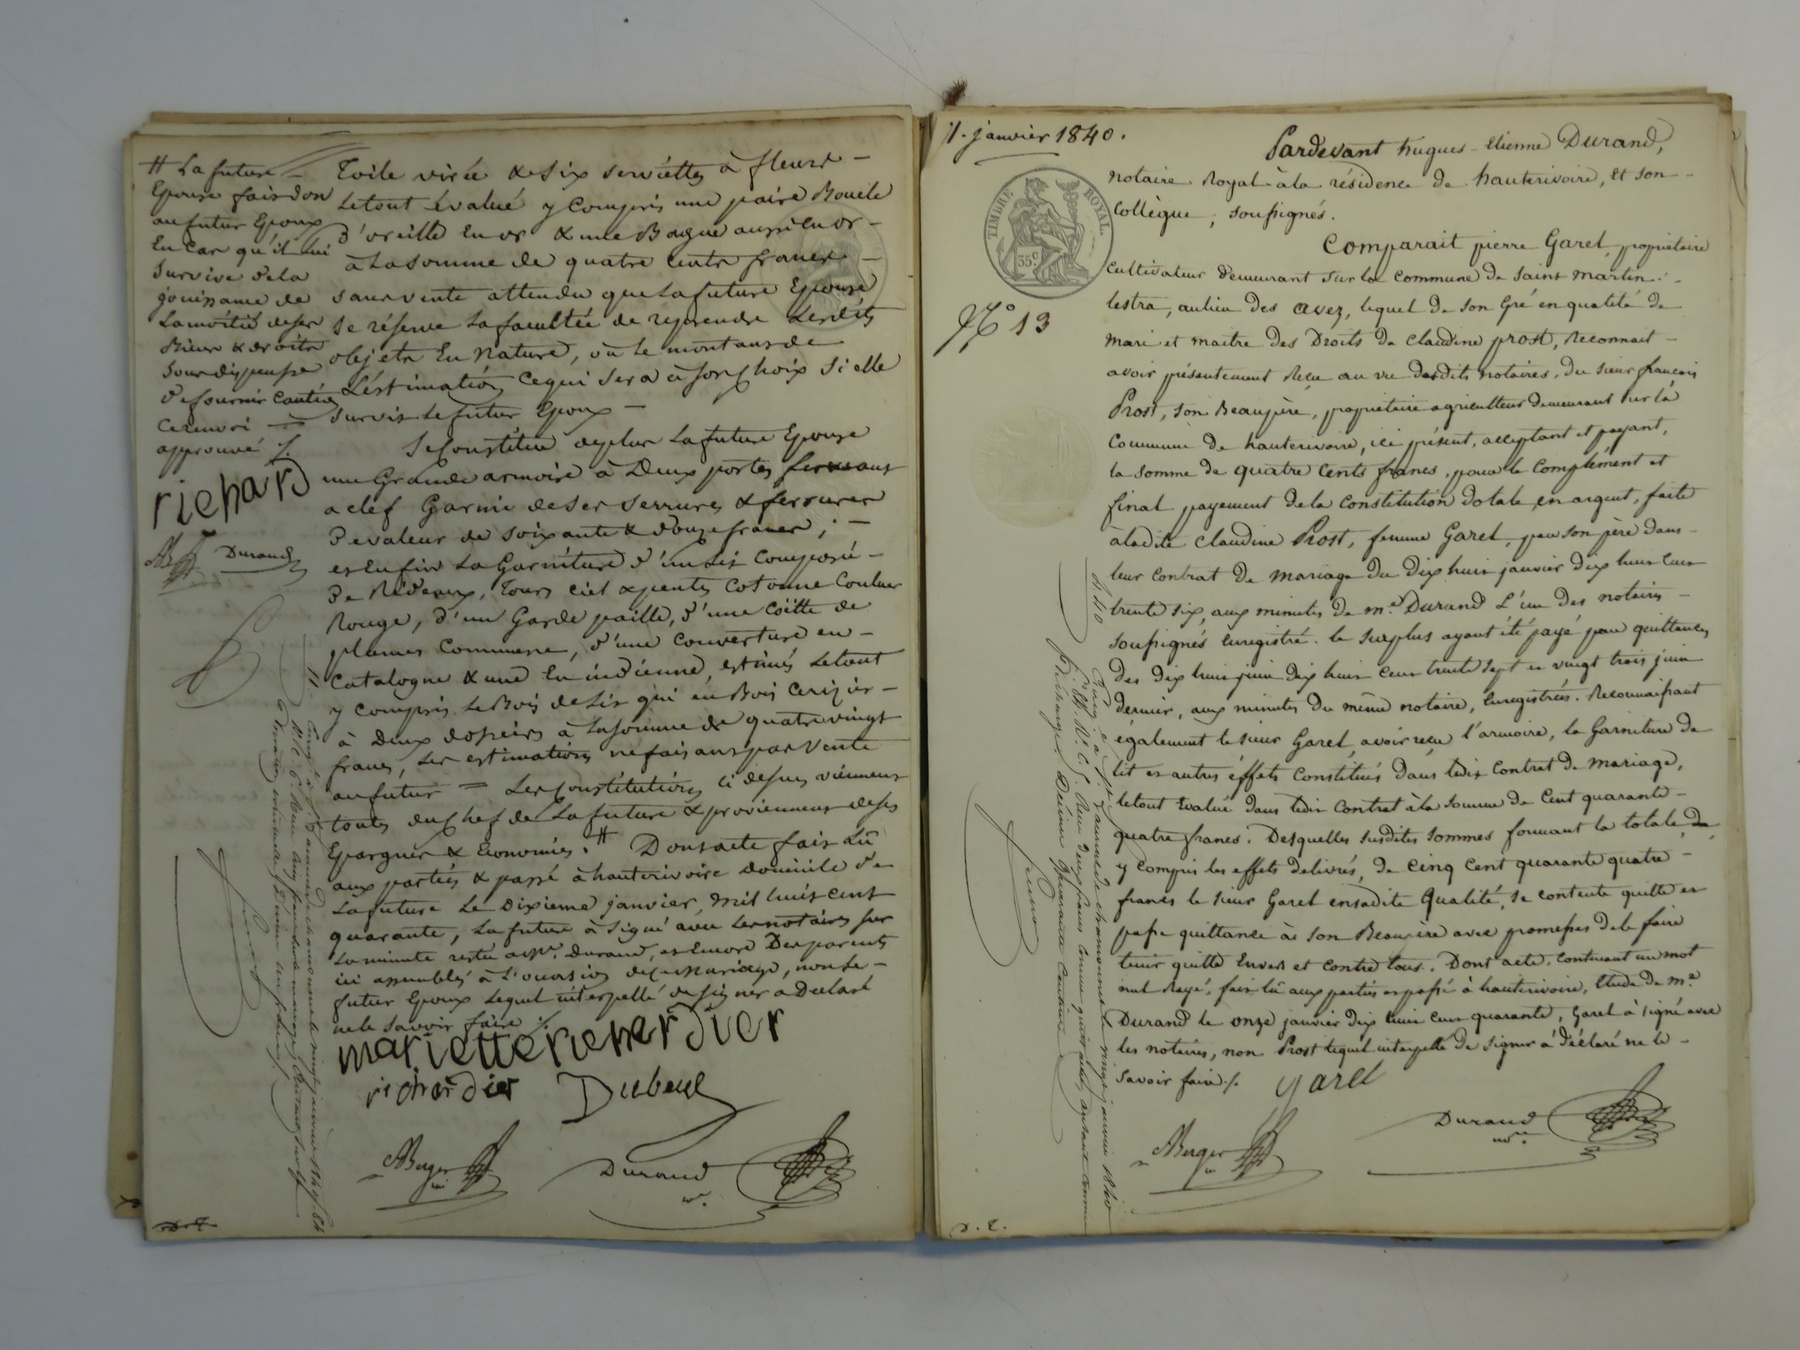 # La future —
Epouse fait don
au futur Epoux
En Cas qu'il lui
Survive de la
jouissance de
La moitié de ses
Biens & droits
Sous dispense
de fournir Caution
Ce renvoi =
approuvé ./.
richard
Durand
Toile virée & Six Serviettes à fleurs —
Le tout évalué y Compris une paire Boucle
d'oreille En or & une Bague aussi En or —
à La Somme de quatre Cents francs —
Sans vente attendu que La future Epouse
Se réserve La facultée de reprendre Lesdits
objets En Nature, ou Le montant de
L'éstimation Ce qui Sera à Son Choix Si elle
Survit Le futur Epoux —
Se Constitue deplus La future Epouse
une Grande armoire à Deux portes fermant
a clef Garnie de Ses Serrures & ferrures
De valeur de Soixante & douze francs ; —
et Enfin La Garniture d'un Lit Composée —
De Rideaux, Tours Ciel & pentes Cotonne Couleur
Rouge, d'un Garde paille, d'une Coitte de
plumes Commune, d'une Couverture en —
Catalogne & une En indienne, estimés Le tout
y Compris Le Bois de Lit qui en Bois Cerizier —
à Deux dossiers à La Somme de quatre vingt
francs, Les estimations ne faisant pas Vente
au futur = Les Constitutions Ci dessus viennent
toutes du Chef de La future & proviennent de Ses
Epargnes & Economies. # Dont acte fait Lû
aux parties & passé à hauterivoire Domicile de
La future Le Dixieme janvier, mil huit cent
quarante, La future à Signé avec Les notaires Sur
La minute restée a Me. Durand, et Encore Des parents
ici assemblés à L'occasion de Ce Mariage, non Le —
futur Epoux Lequel interpellé de Signer a Déclaré
ne le Savoir faire ./.
mariette richardier
richardier Dubeuf
Berger Durand
nre.
11. janvier 1840.
TIMBRE ROYAL
35c
No 13
Pardevant hugues - etienne Durand,
notaire Royal à la résidence de hauterivoire, et son —
Collègue, soussignés.
Comparait pierre Garel, propriétaire
Cultivateur demeurant sur la Commune de saint martin
lestra, au lieu des avez, lequel de son Gré en qualité de
mari et maitre des Droits de Claudine prost, Reconnait —
avoir présentement Reçu au vu desdits notaires, du sieur françois
Prost, son Beaupère, propriétaire agriculteur demeurant sur la
Commune de hauterivoire, ici présent, acceptant et payant,
la somme de quatre Cents francs, pour le Complément et
final payement de la Constitution dotale en argent, faite
à ladite Claudine Prost, femme Garel, par son père dans —
leur Contrat de Mariage du dix huit janvier dix huit Cent
trente six, aux minutes de me. Durand L'un des notaires —
soussignés Enregistré. le surplus ayant été payé par quittances
des dix huit juin dix huit Cent trente sept et vingt trois juin
dernier, aux minutes du même notaire, Enregistrées. Reconnaissant
également le sieur Garel, avoir reçu l'armoire, la Garniture de
lit et autres éffets Constitués dans ledit Contrat de mariage,
le tout Evalué dans ledit Contrat à la somme de Cent quarante —
quatre francs. Desquelles susdites sommes formant la totale, de
y Compris les effets délivrés, de Cinq Cent quarante quatre —
francs le sieur Garel en sadite Qualité, se Contente quitte et
passe quittance à son Beaupère avec promesses de le faire
tenir quitte Envers et Contre tous. Dont acte, Contenant un mot
nul Rayé, fait lû aux parties et passé à hauterivoire, Etude de me.
Durand le onze janvier dix huit cent quarante, Garel à signé avec
les notaires, non Prost lequel interpellé de Signer à déclaré ne le —
savoir faire ./. garel
Berger Durand
nre.
D. E.